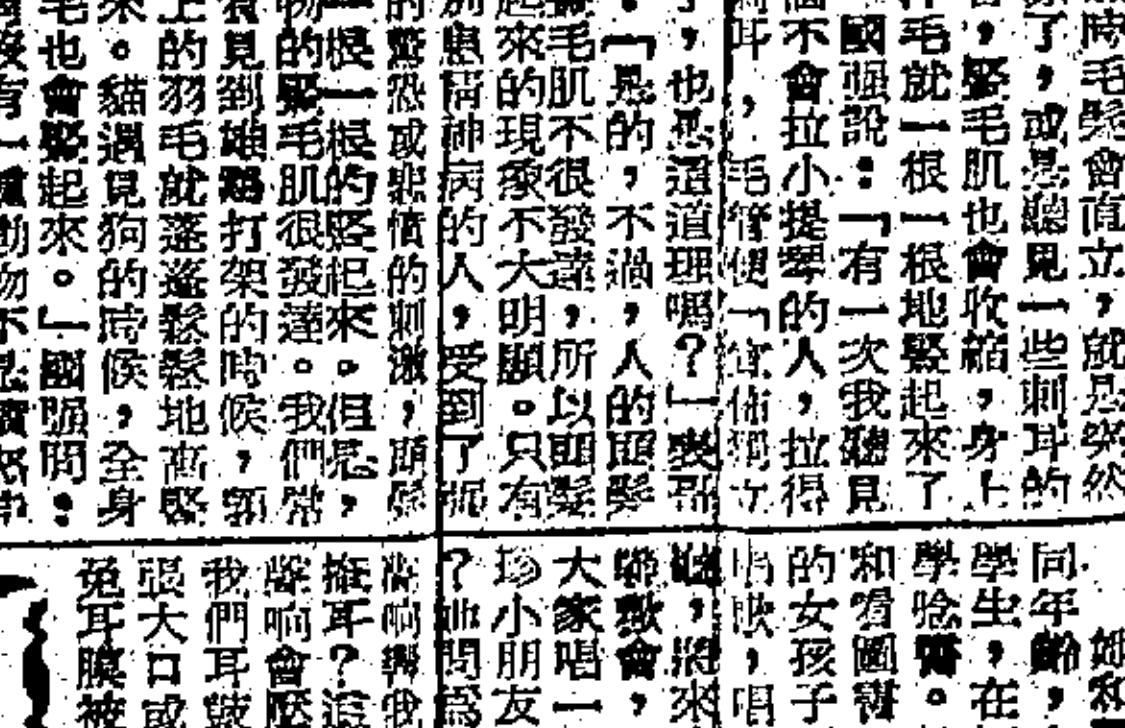 時毛髮會直立，就是突然
了，或是聽見一些刺耳的
，豎毛肌也會收縮，身上
毛就一根一根地豎起來了
國强說：「有一次我聽見
個不會拉小提琴的人，拉得
耳，毛管便「
，也是這道理嗎？」
。「是的，不過，人的頭髮
毛肌不很發達，所以頭髮
起來的現象不大明顯。只有
患精神病的人，受到了
的驚恐或悲憤的刺激，頭髮
一根一根的豎起來。但是，
物的豎毛肌很發達。我們常
見到雄鷄打架的時候，頸
上的羽毛就蓬蓬鬆鬆地高豎
來。貓遇見狗的時候，全身
毛也會豎起來。」國强問：
有一種動物不是
姐和
同年齡，
學生，在
學唸書。
和看圖講
的女孩子
，唱
，將來
聯歡會，
大家唱一
珍小朋友
？她問爲
响
掩耳？這
聲响會壓
我們耳鼓
張大口或
免耳膜被